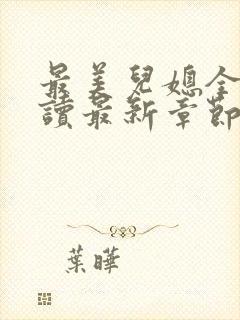 最美兒媳全
讀最新章節
葉曄